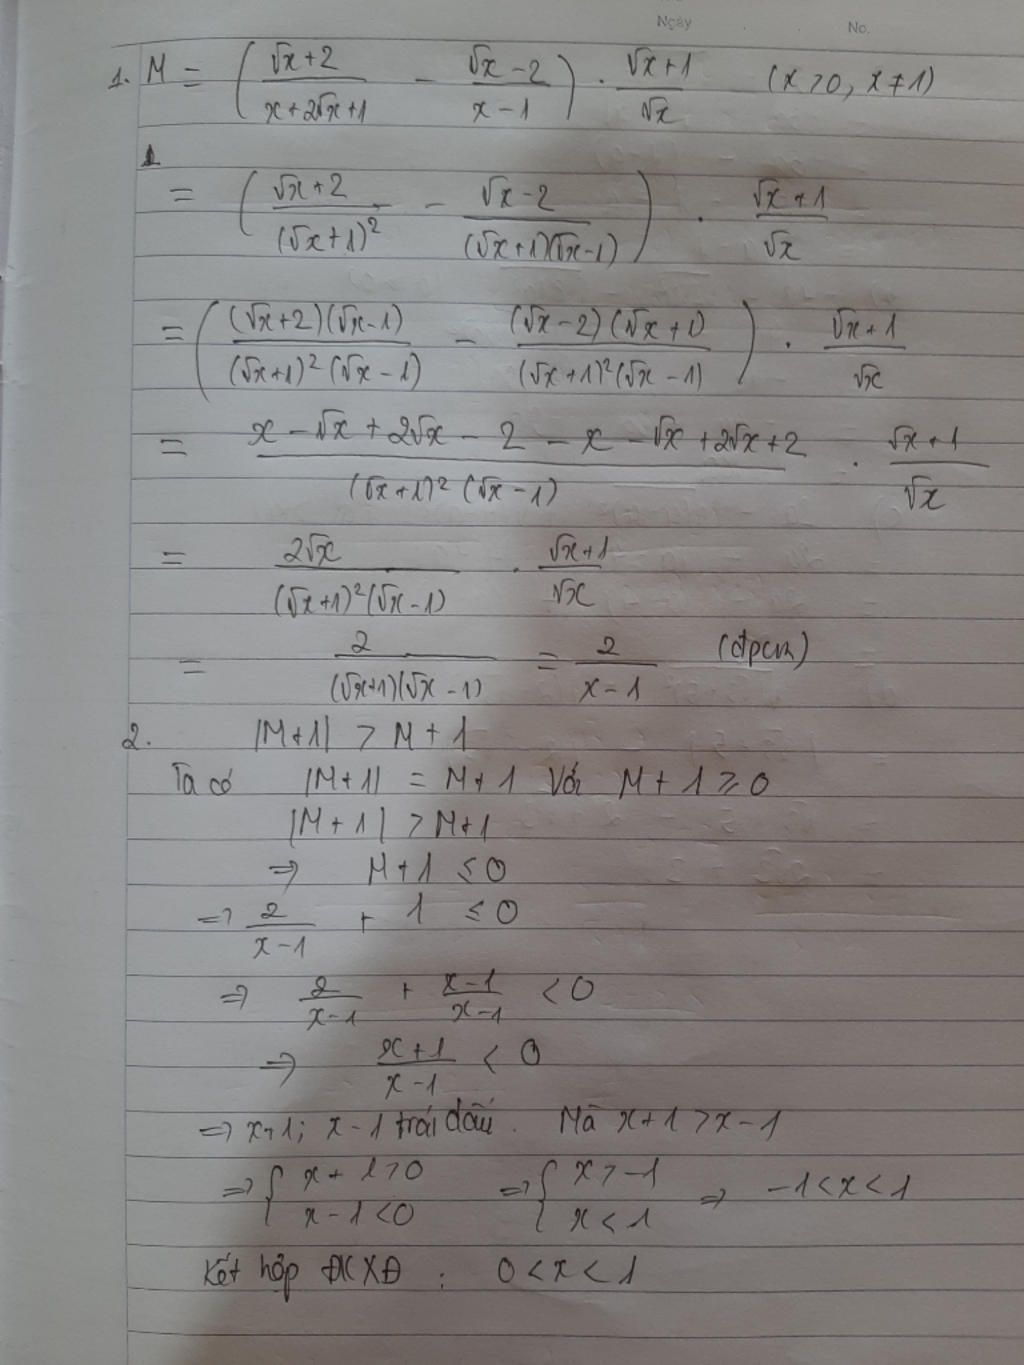 Ngày No.
1. M = ( (√x+2)/(x+2√x+1) - (√x-2)/(x-1) ) . (√x+1)/√x (x>0, x≠1)
1
= ( (√x+2)/(√x+1)² - (√x-2)/((√x+1)(√x-1)) ) . (√x+1)/√x
= ( ((√x+2)(√x-1))/((√x+1)²(√x-1)) - ((√x-2)(√x+1))/((√x+1)²(√x-1)) ) . (√x+1)/√x
= (x-√x+2√x-2-x-√x+2√x+2)/((√x+1)²(√x-1)) . (√x+1)/√x
= 2√x/((√x+1)²(√x-1)) . (√x+1)/√x
= 2/((√x+1)(√x-1)) = 2/(x-1) (đpcm)
2. |M+1| > M+1
Ta có |M+1| = M+1 Với M+1 ≥ 0
|M+1| > M+1
⇒ M+1 ≤ 0
⇒ 2/(x-1) + 1 ≤ 0
⇒ 2/(x-1) + (x-1)/(x-1) < 0
⇒ (x+1)/(x-1) < 0
⇒ x+1; x-1 trái dấu. Mà x+1 > x-1
⇒ { x+1>0 ; x-1<0 ⇒ { x>-1 ; x<1 ⇒ -1<x<1
Kết hợp ĐKXĐ : 0<x<1